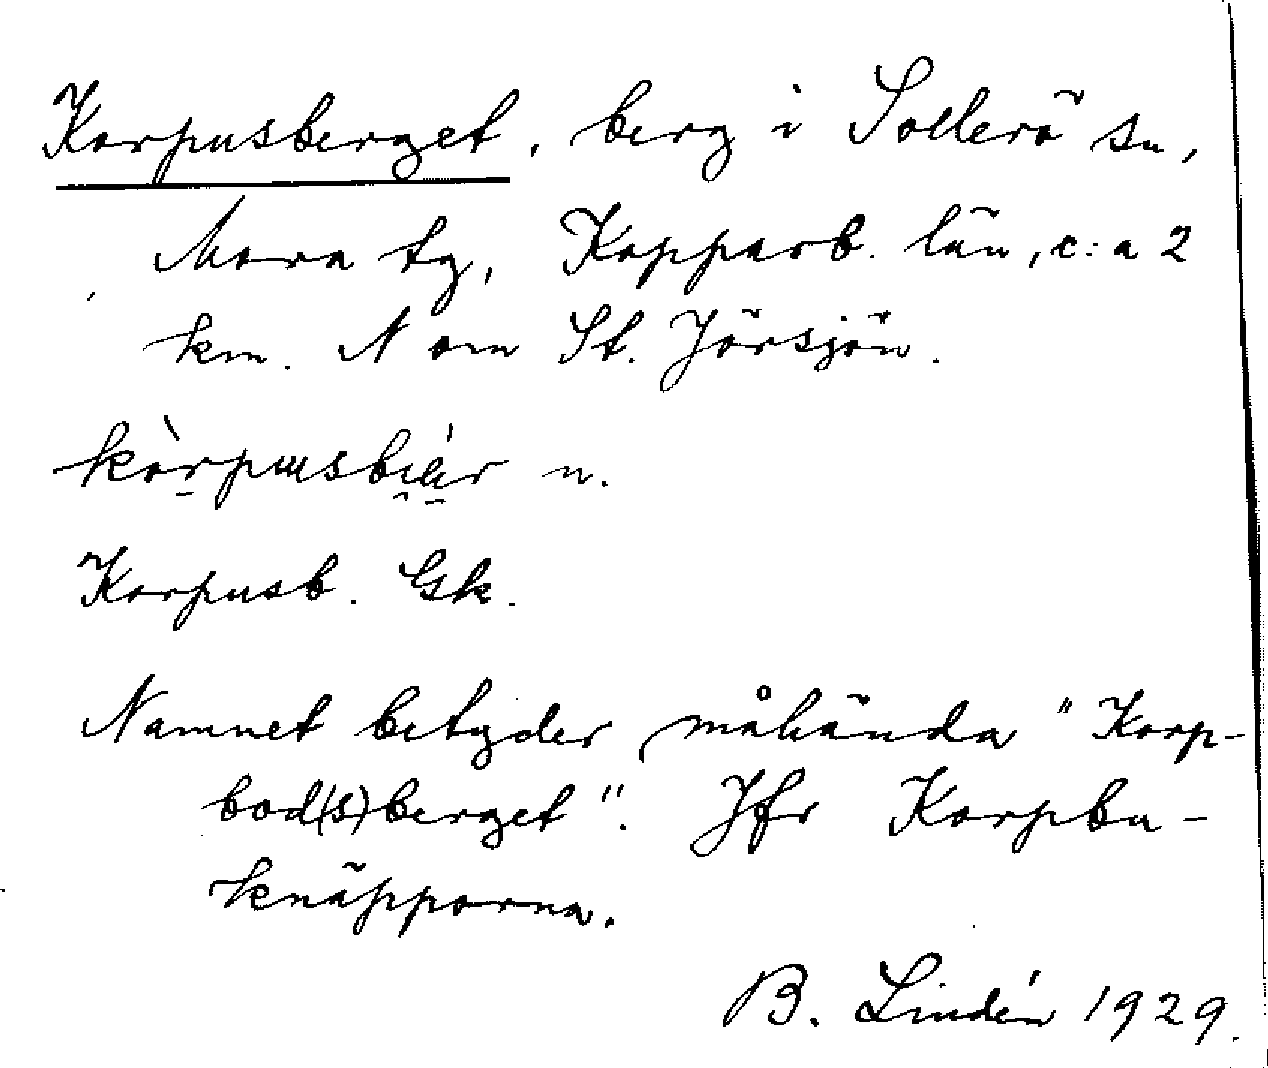 Korpusberget, berg i Sollerö sn,
Mora tg, Kopparb. län, c:a 2
km. N om St. Jörsjön.
n.
Korpusb. Gk.
Namnet betyder måhända "Korp-
bod(s)berget". Jfr Korpbu-
knäpporna.
B. Lindén 1929.